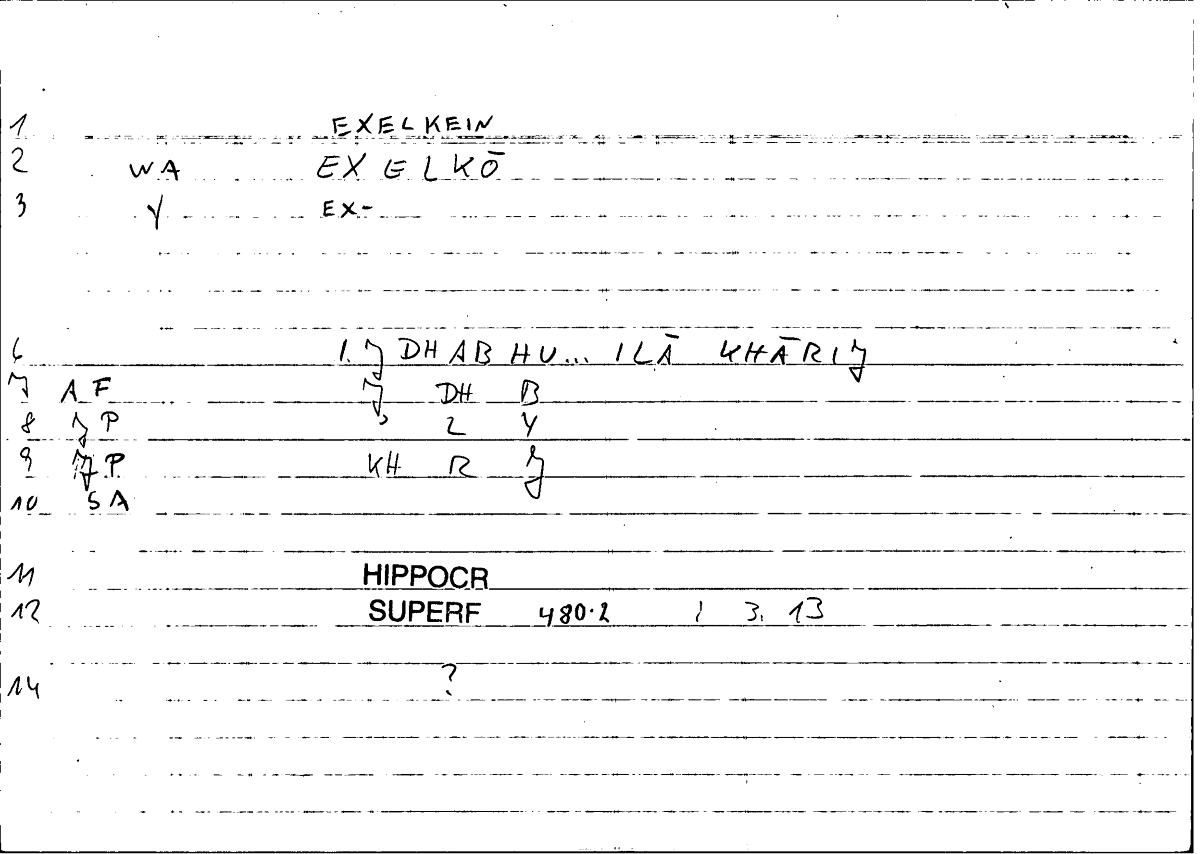 1 EXELKEIN
2 WA EXELKŌ
3 Y EX-
6 I.J DHABHU... ILĀ KHĀRIJ
7 AF J DH B
8 JP ' L Y
9 P KH R J
10 SA
11 HIPPOCR
12 SUPERF 480·2 3. 13
14 ?